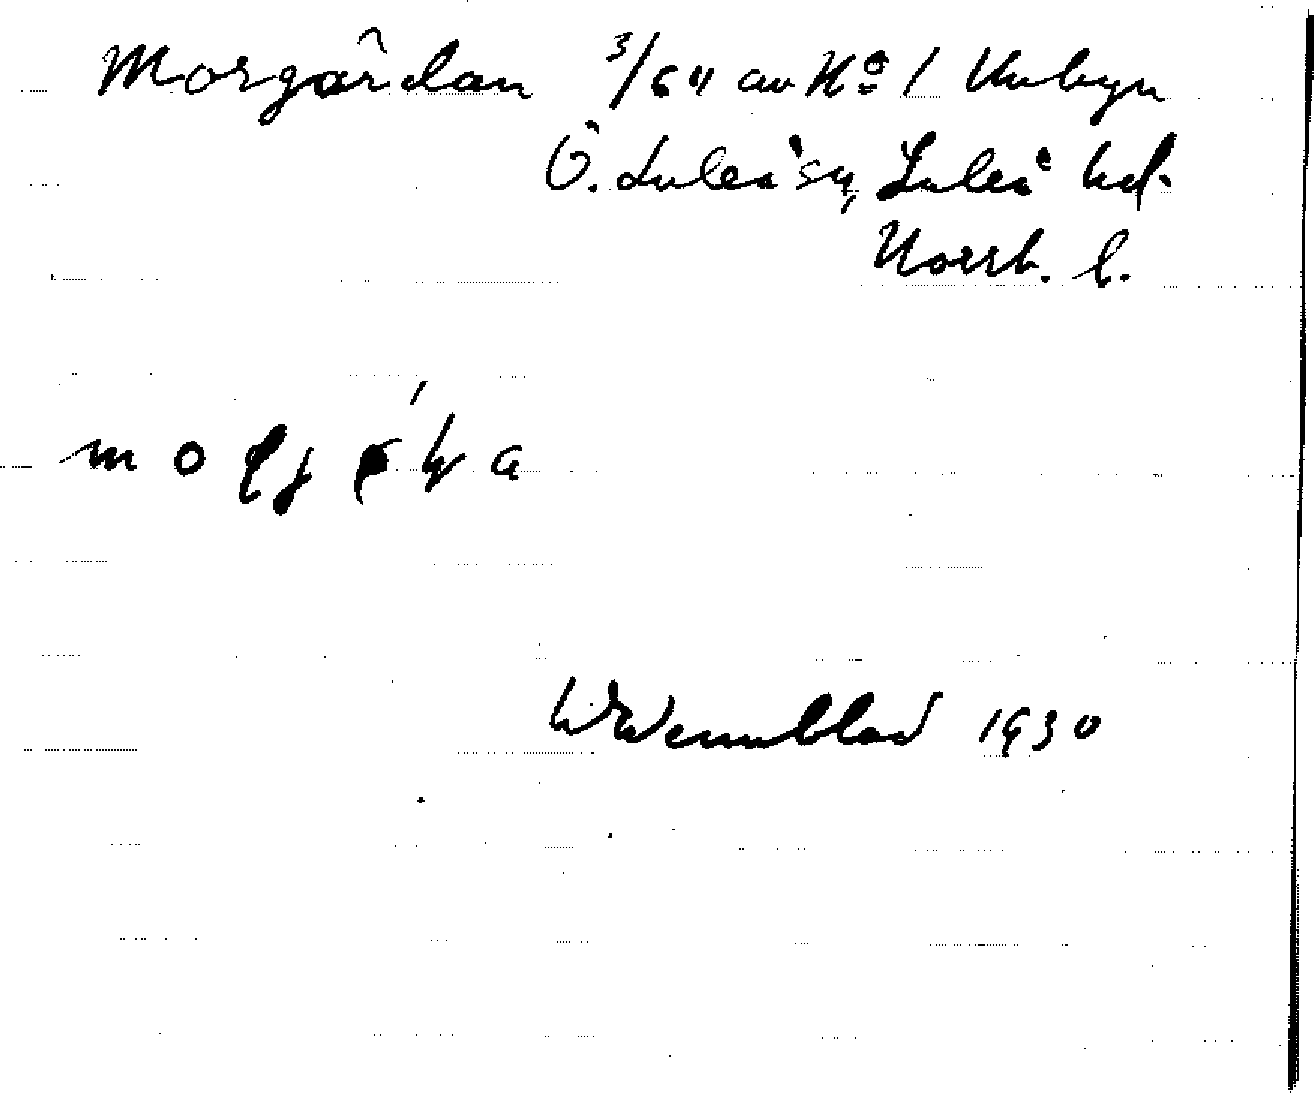 Morgårdan 3/64 av No 1 Unbyn
Ö. Luleå sn, Luleå hd.
Norrb. l.
Wennblad 1930